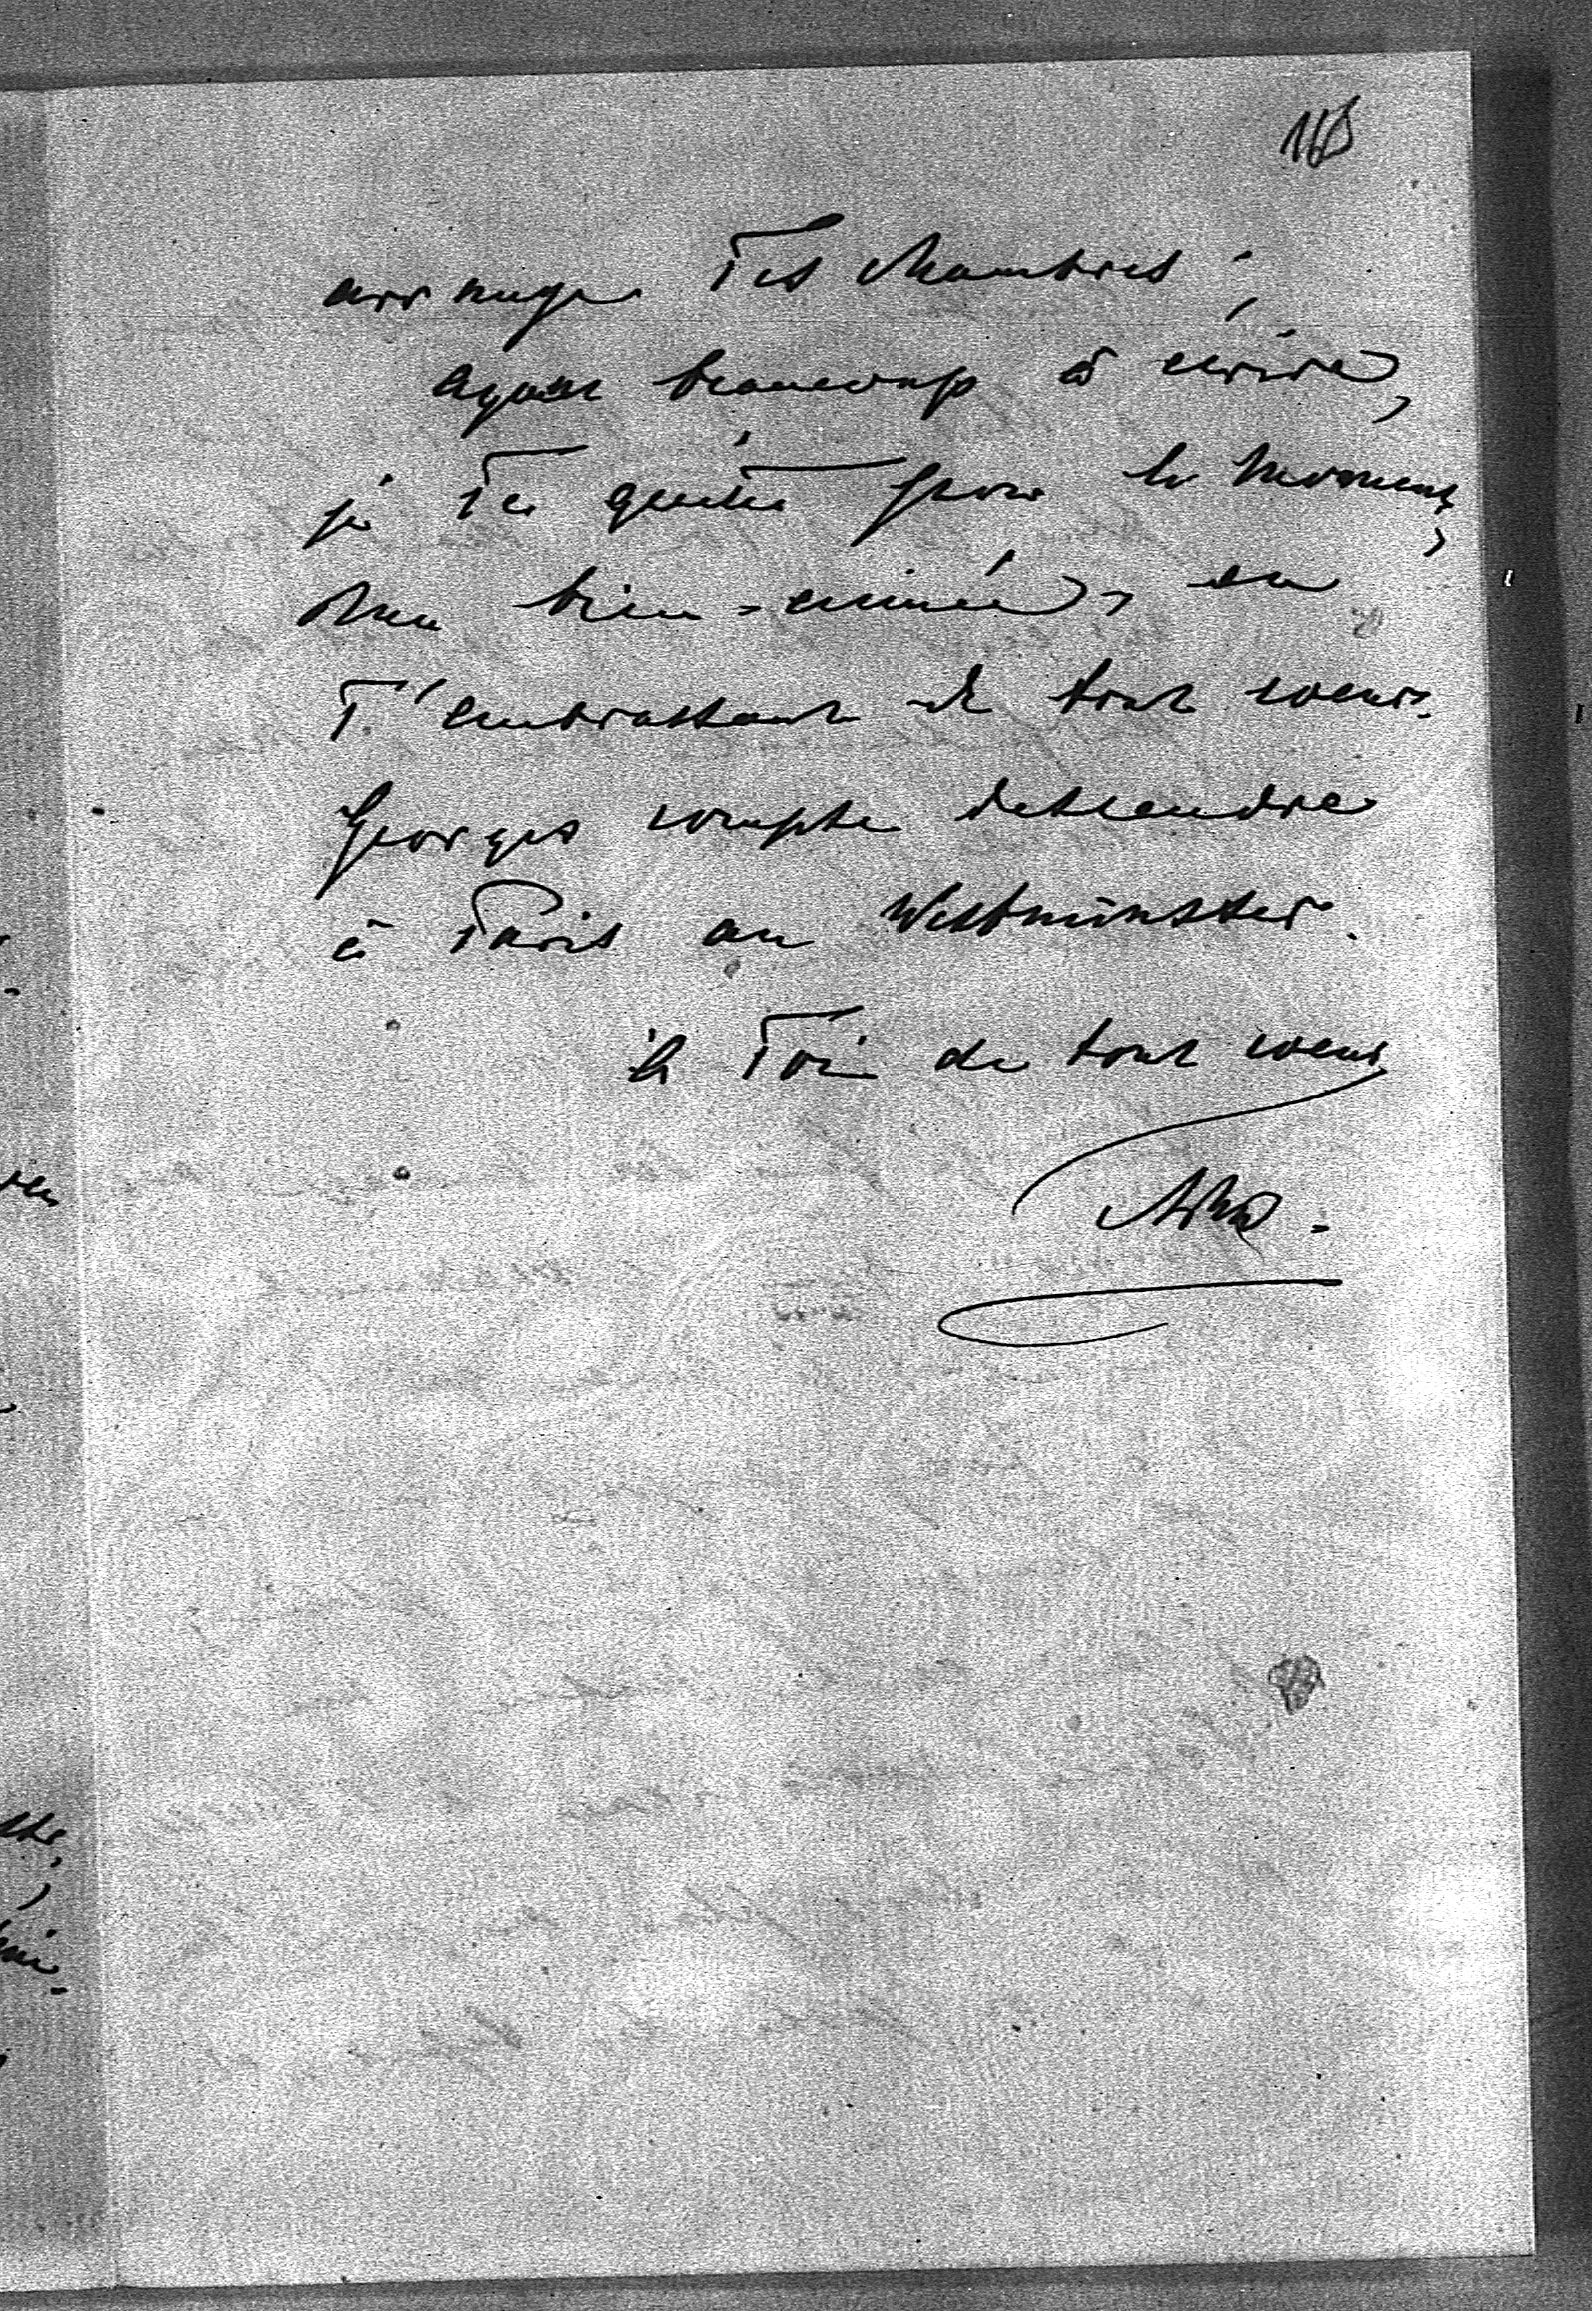 165
arranger Tes chambres ;
Ayant beaucoup à écrire,
je Te quitte pour le moment,
Ma bien-aimée, en
T'embrassant de tout coeur.
Georges compte descendre
à Paris au Westminster.
à Toi de tout coeur